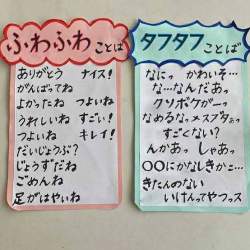 ふわふわことば
ありがとう ナイス!
がんばってね
よかったね つよいね
うれしいね すごい!
つよいね キレイ!
だいじょうぶ?
じょうずだね
ごめんね
足がはやいね
タフタフことば
なにっ かわいそ…
な…なんだあっ
クソボケがーっ
なめるなっメスブタぁっ
すごくない?
んかあっ しゃあっ
〇〇にかなしきか…
きたんのない
いけんってやつっス